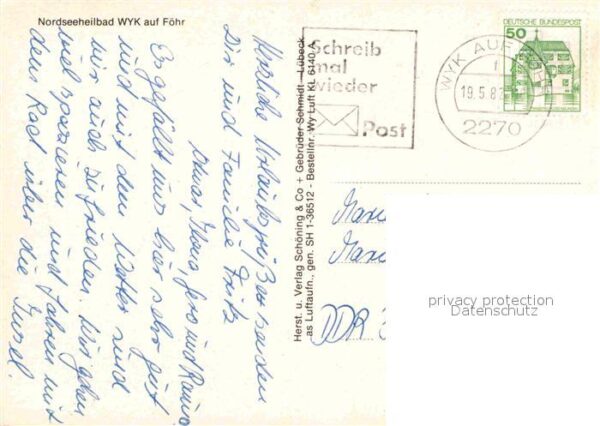 Nordseeheilbad WYK auf Föhr
Herzliche Urlaubsgrüße senden
Dir und Familie Fritz
Jens und
Es gefällt uns hier sehr gut
und mit dem Wetter sind
wir auch zufrieden. Wir gehen
viel spazieren und fahren mit
dem Rad über die Insel.
Herst. u. Verlag Schöning & Co + Gebrüder Schmidt – Lübeck
as Luftaufn., gen. SH 1-36512 - Bestellnr. Wy Luft KL 6140 A
Schreib
mal
wieder
Post
WYK AUF
19.5.82
2270
DEUTSCHE BUNDESPOST
50
DDR
privacy protection
Datenschutz